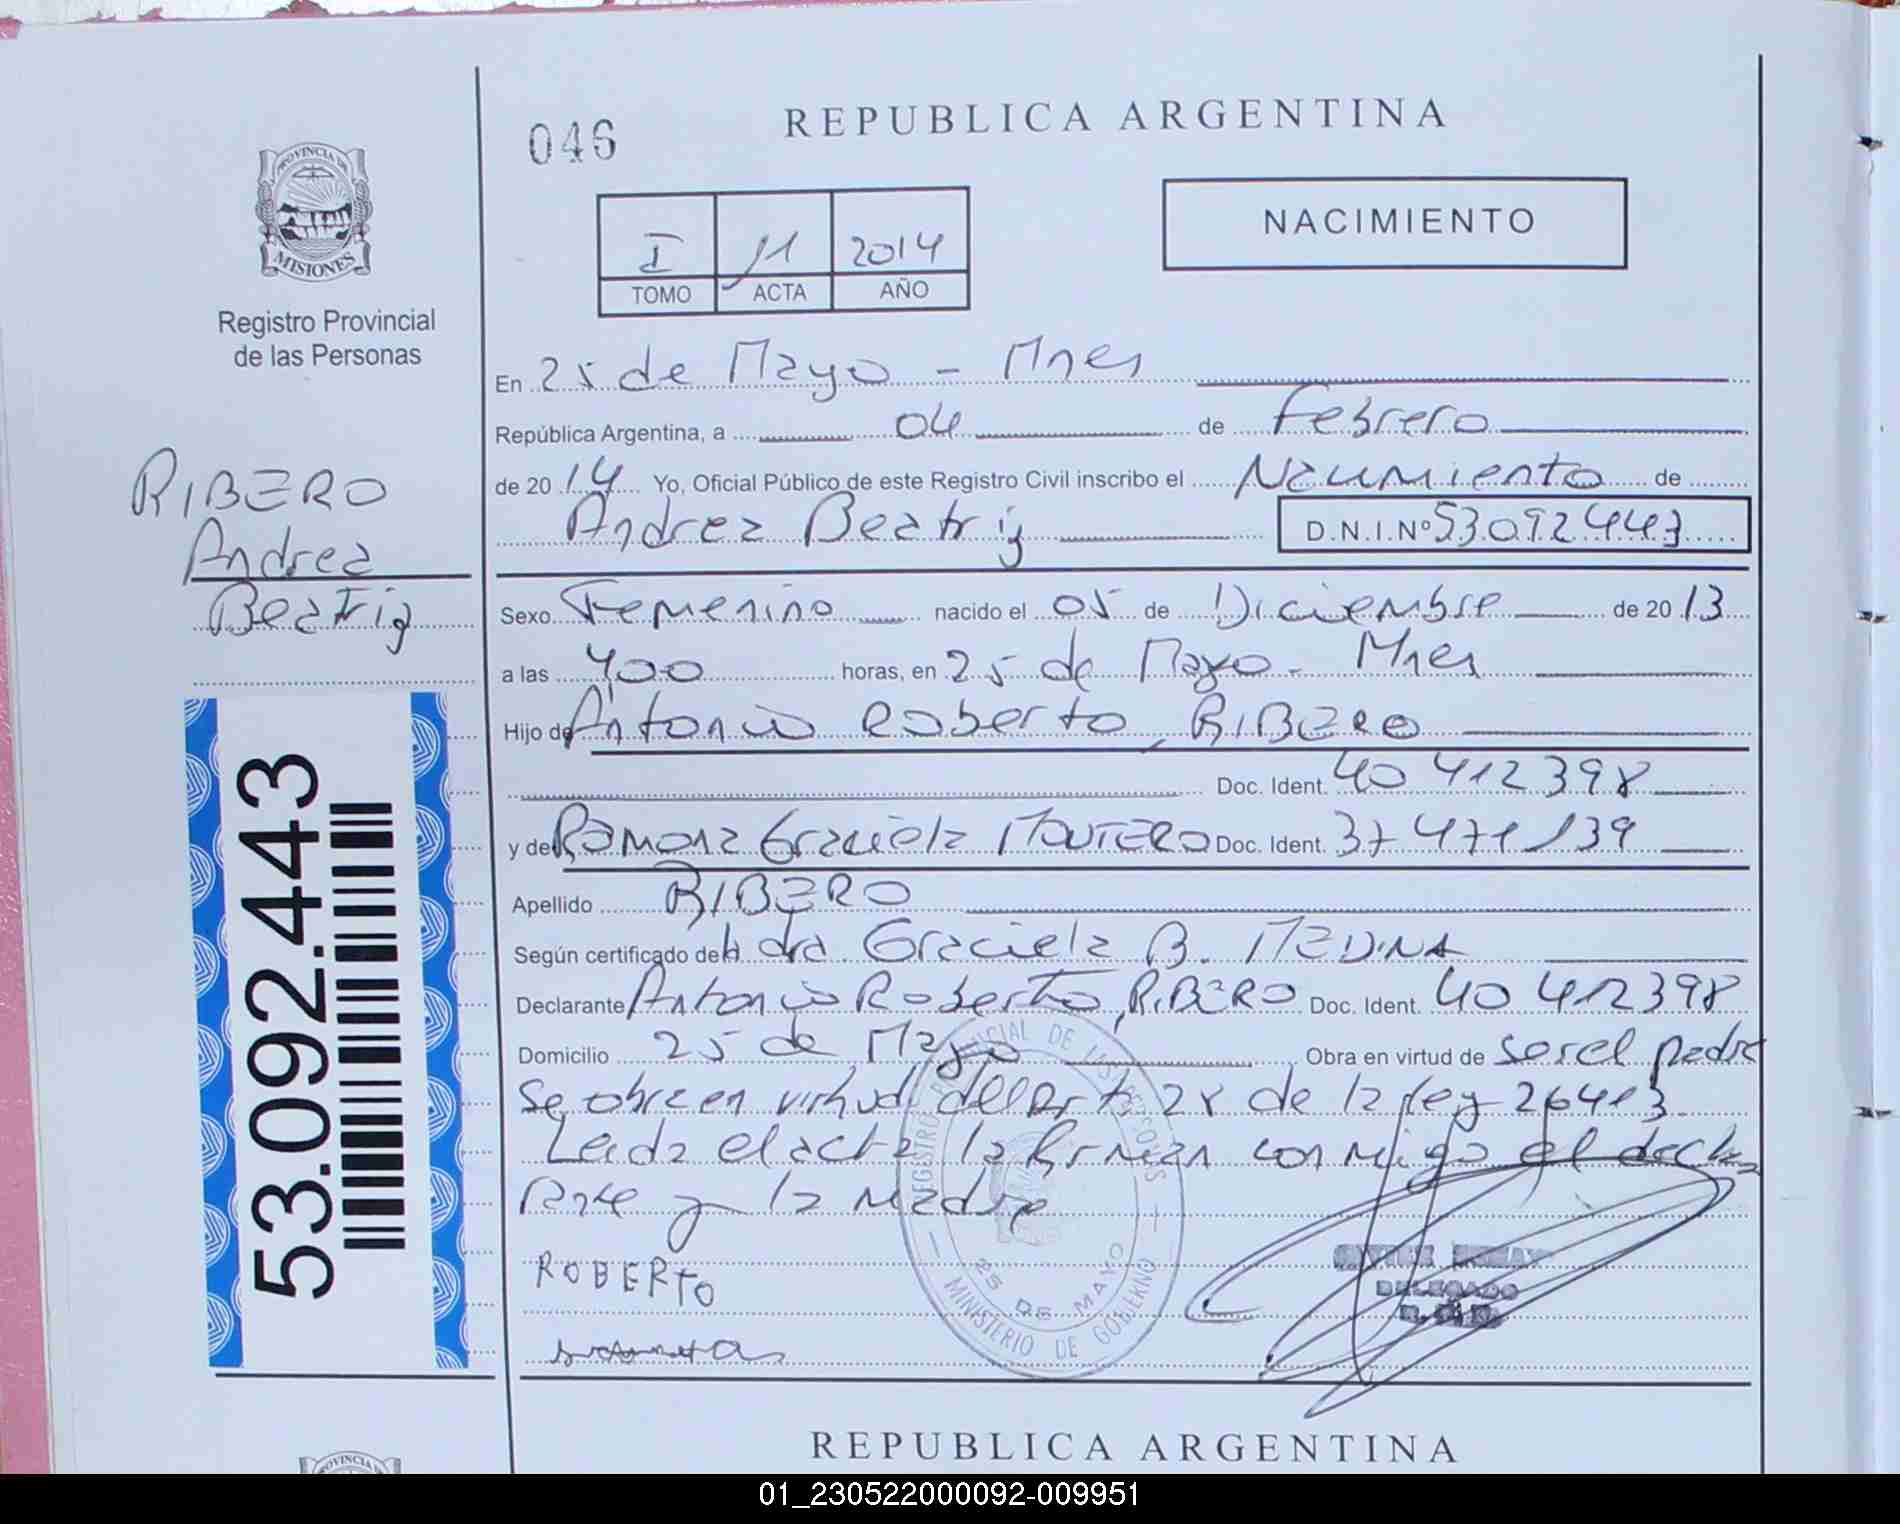 046
REPUBLICA ARGENTINA
PROVINCIA DE
MISIONES
Registro Provincial
de las Personas
NACIMIENTO
I 11 2014
TOMO ACTA AÑO
En 25 de Mayo - Mnes
República Argentina, a 04 de Febrero
de 20 14 Yo, Oficial Público de este Registro Civil inscribo el Nacimiento de
Andrea Beatriz D.N.I.Nº 53092443
RIBERO
Andrea
Beatriz
Sexo Femenino nacido el 05 de Diciembre de 20 13
a las 400 horas, en 25 de Mayo - Mnes
Hijo de Antonio Roberto RIBERO
Doc. Ident. 40 412 398
y de Ramona Graciela Doc. Ident. 37 471 139
Apellido RIBERO
Según certificado de la dra Graciela B. MEDINA
Declarante Antonio Roberto RIBERO Doc. Ident. 40 412398
Domicilio 25 de Mayo Obra en virtud de ser el padre
Se obra en virtud del Art 28 de la ley 26413
Leida el acta la firman conmigo el decla
rante y la madre
53.092.443
ROBERTO
REGISTRO PROVINCIAL DE LAS PERSONAS
25 DE MAYO
MINISTERIO DE GOBIERNO
DELEGADO
REPUBLICA ARGENTINA
PROVINCIA DE
01_230522000092-009951